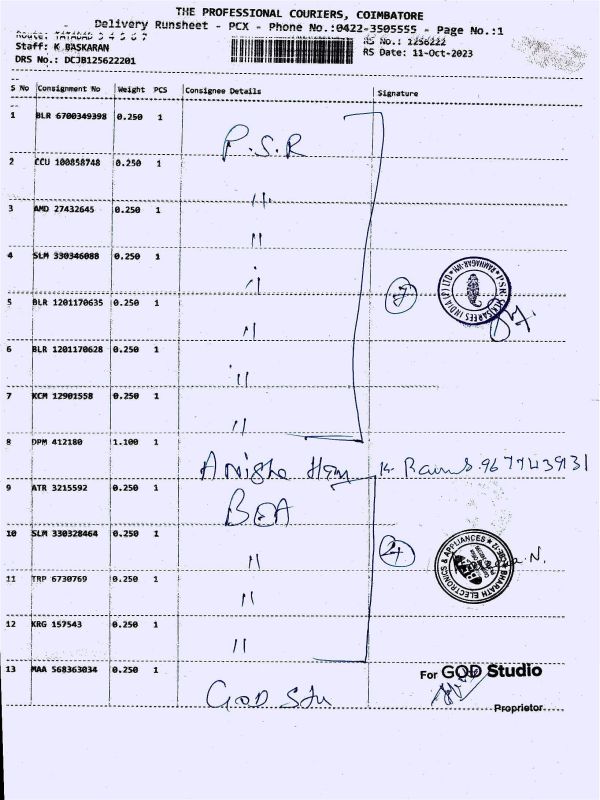 THE PROFESSIONAL COURIERS, COIMBATORE
Delivery Runsheet - PCX - Phone No.:0422-3505555 - Page No.:1
Route: TATABAD 3 4 5 6 7
RS No.: 1256222
Staff: K BASKARAN
RS Date: 11-Oct-2023
DRS No.: DCJB125622201
S No Consignment No Weight PCS Consignee Details Signature
1 BLR 6700349398 0.250 1
P.S.R
2 CCU 100858748 0.250 1
〃
3 AMD 27432645 0.250 1
〃
4 SLM 330346088 0.250 1
〃
5 BLR 1201170635 0.250 1
〃
6 BLR 1201170628 0.250 1
〃
7 KCM 12901558 0.250 1
〃
8 DPM 412180 1.100 1
9 ATR 3215592 0.250 1
BEA
10 SLM 330328464 0.250 1
〃
11 TRP 6730769 0.250 1
〃
12 KRG 157543 0.250 1
〃
13 MAA 568363034 0.250 1
GOD Stu
For GOD Studio
Proprietor
BHARATH ELECTRONICS & APPLIANCES